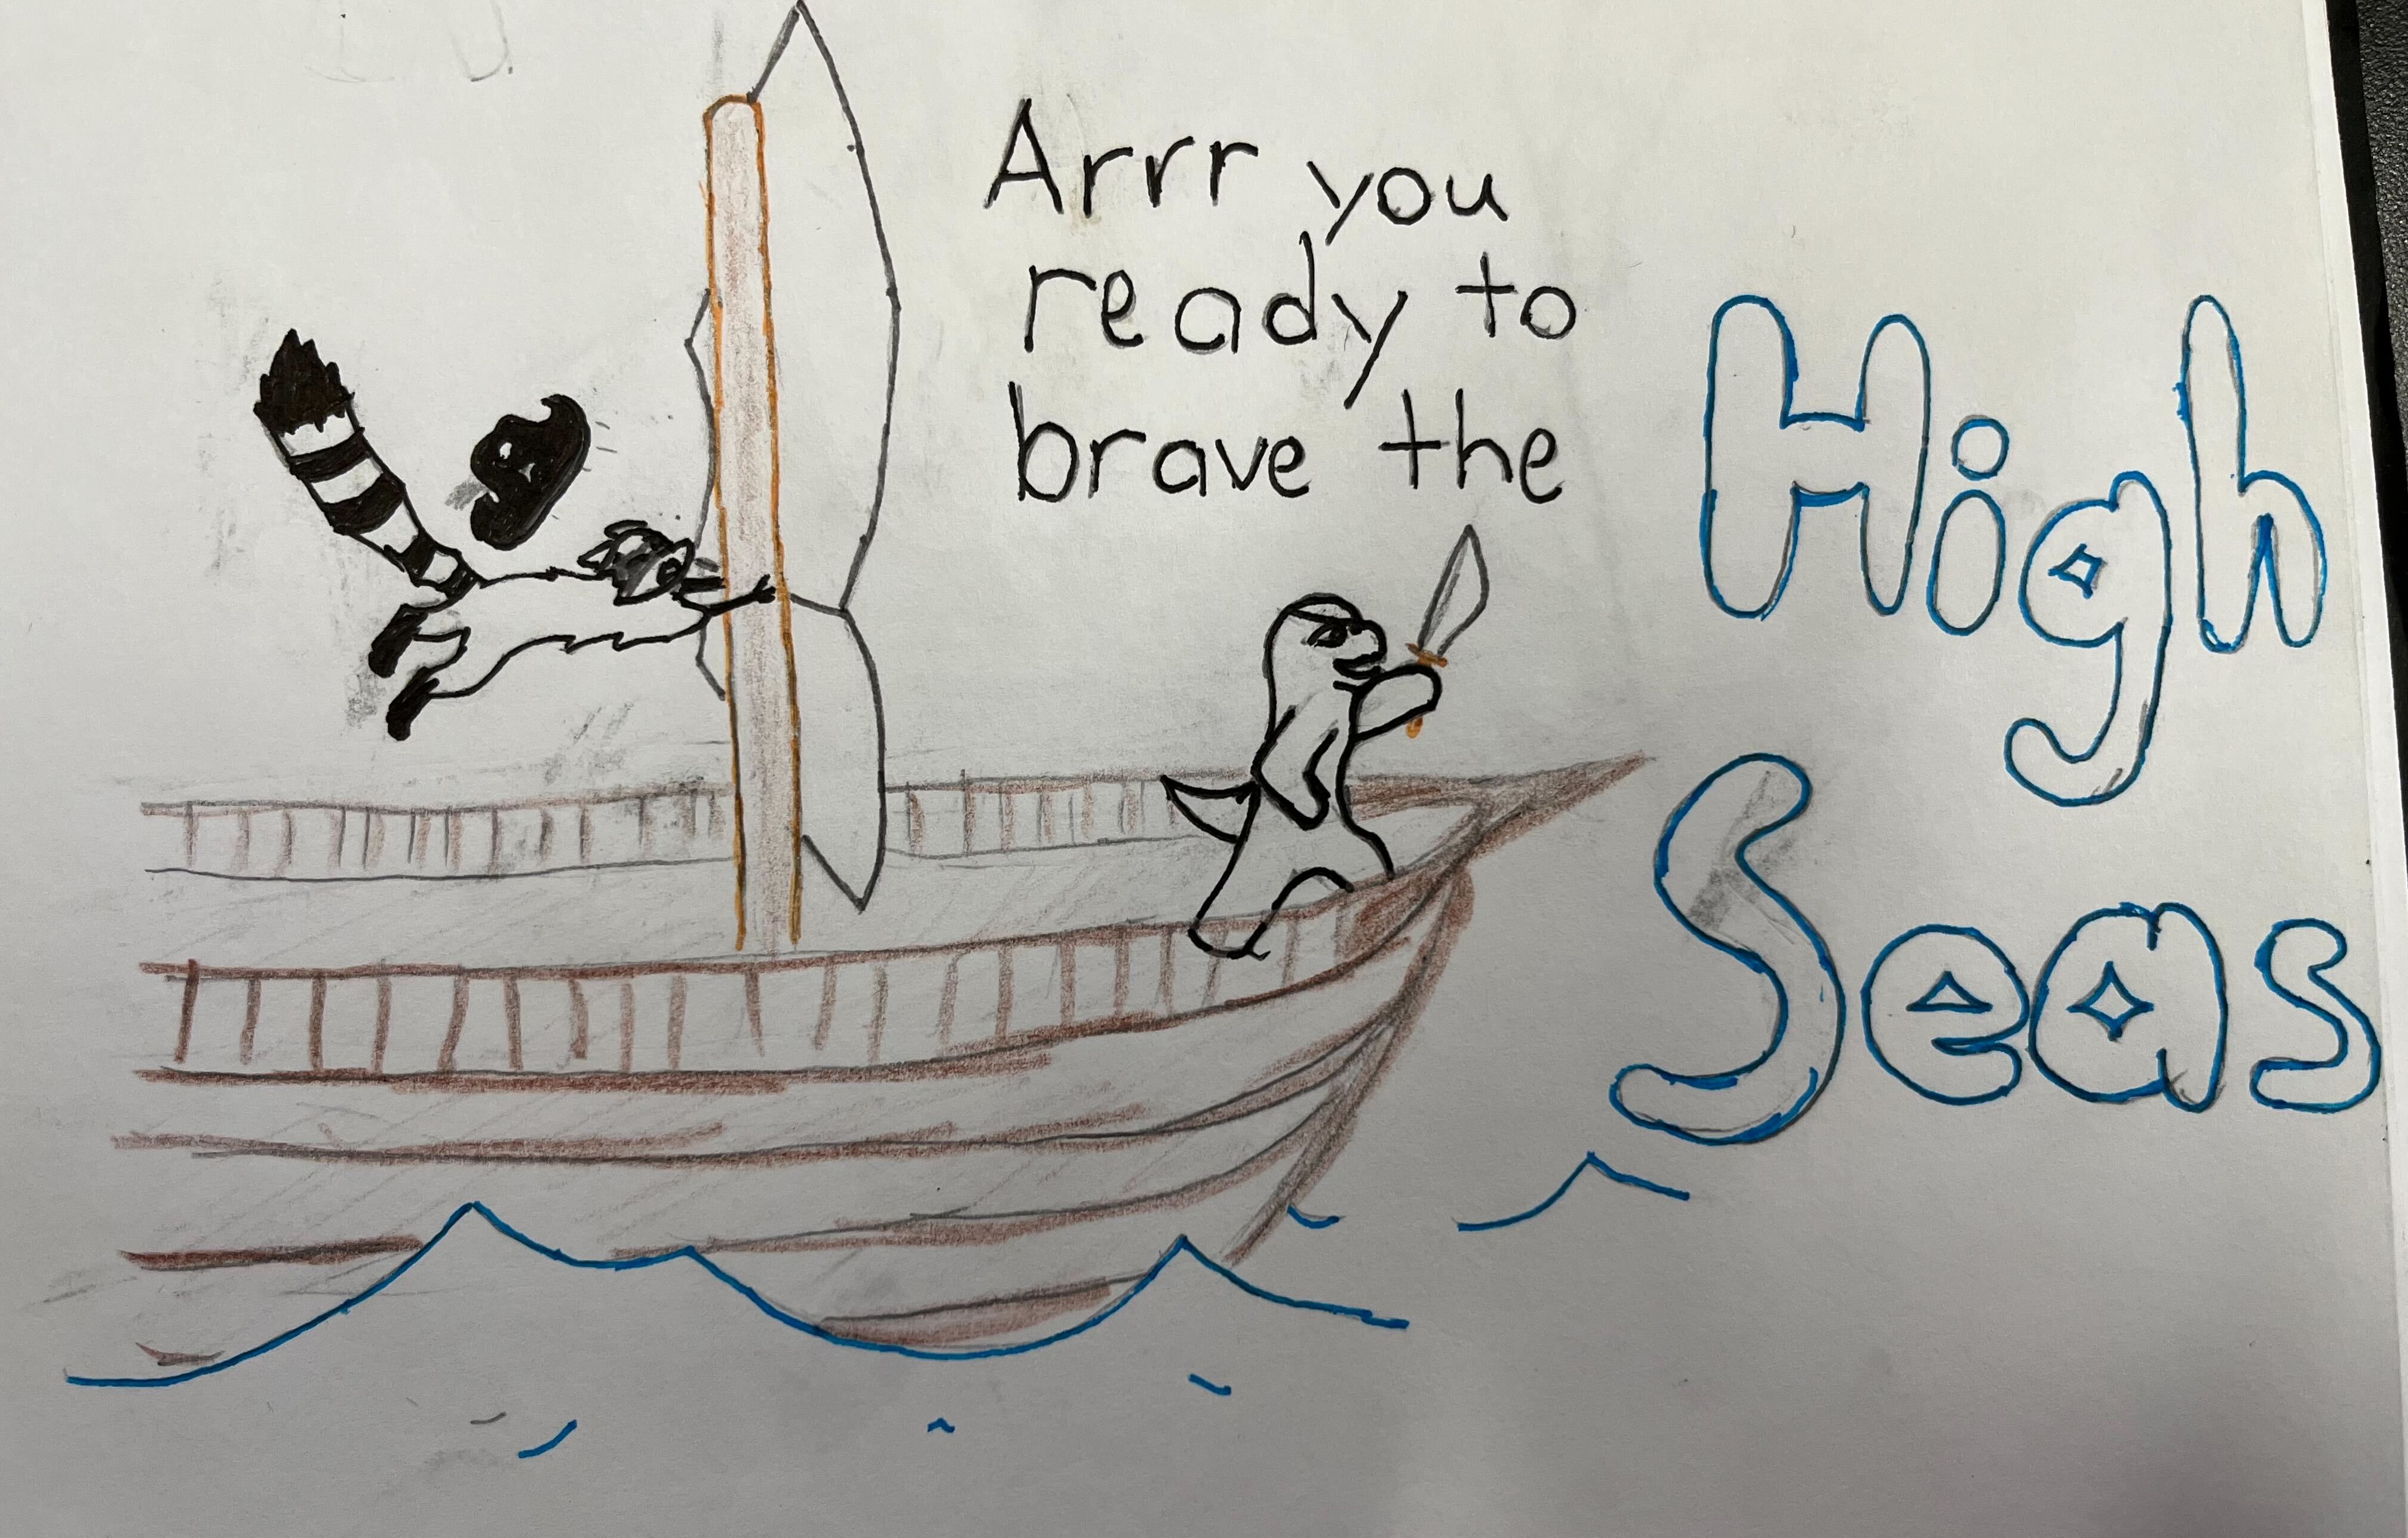 Arrr you
ready to
brave the
High
Seas